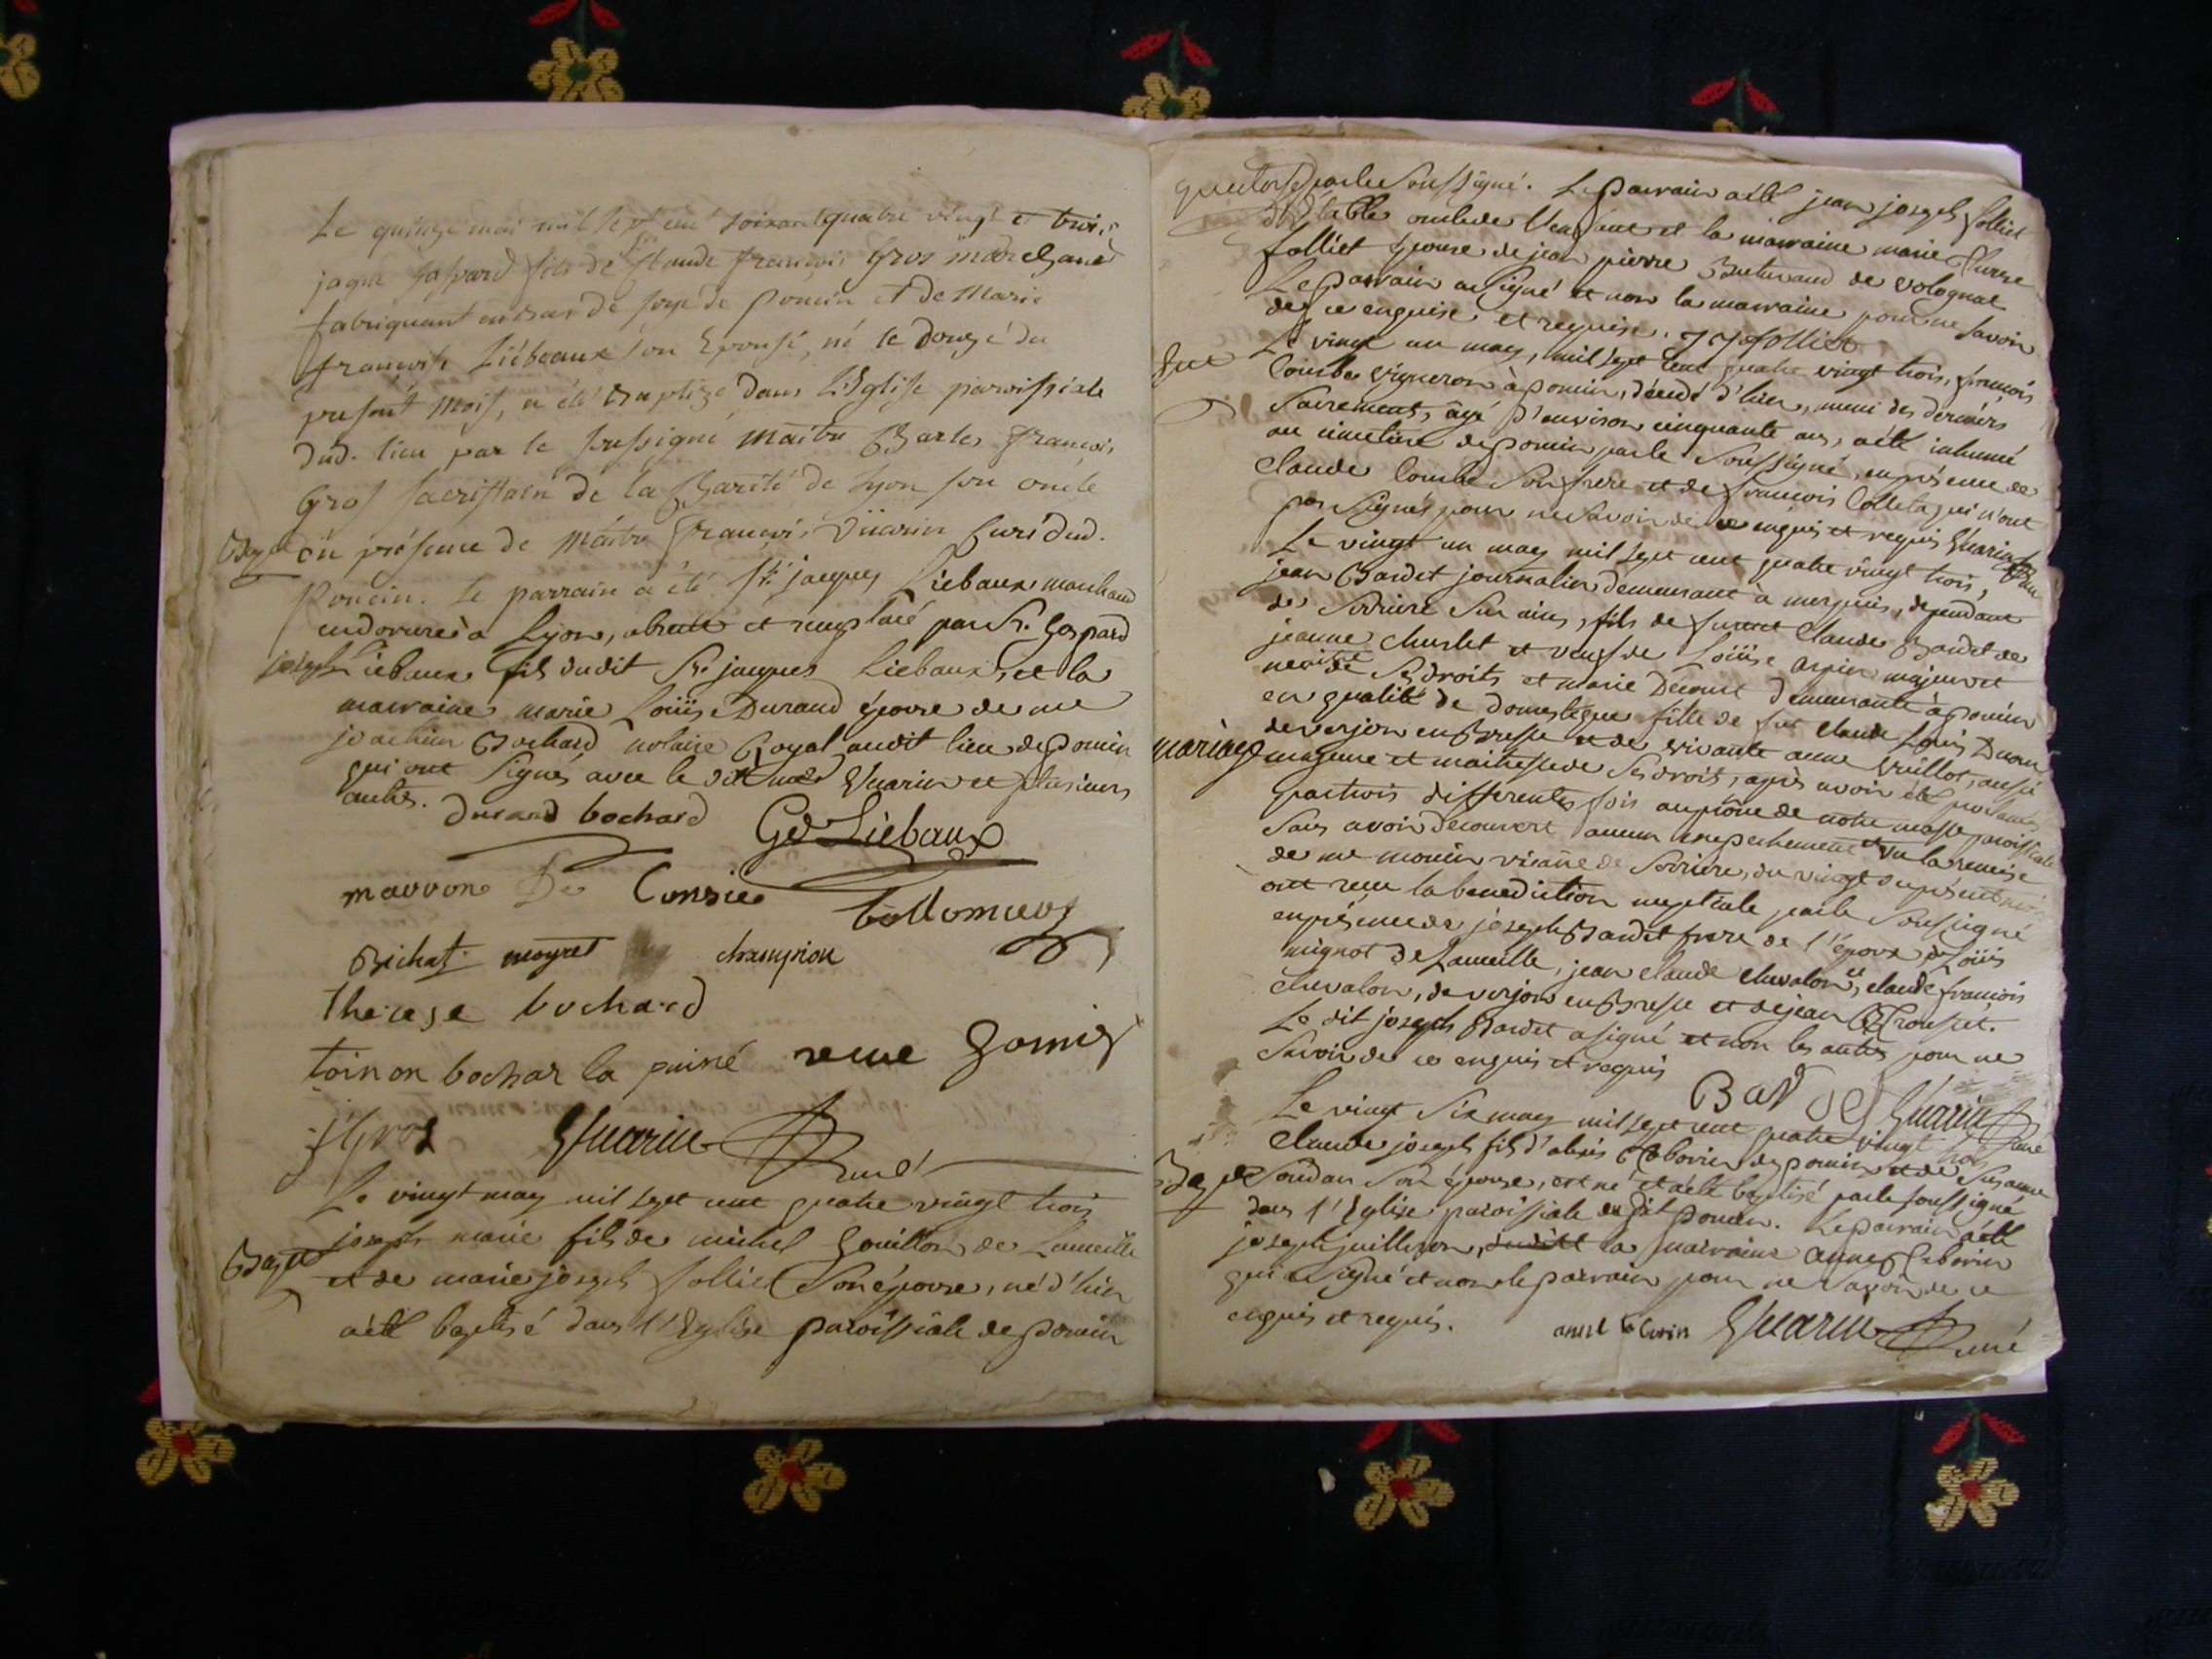 Le quinze mai mil sept cent soixante quatre vingt et trois
jaque Gaspard fils de Sr Claude françois Gros marchand
fabriquant en bas de soye de Poncin et de Marie
françoise Liébeaux son Epouse, né le douze du
present mois, a été baptizé dans L'Eglise paroissiale
dud. lieu par le soussigné Maitre françois
Gros sacristain de la Charité de Lyon son oncle
Bapt en présence de Maitre françois Guarin Curé dud.
Poncin. Le parrain a été Sr. jacques Liebaux marchand
en dorures à Lyon, absent et remplacé par Sr. Gaspard
Liebaux fils dudit Sr. jacques Liebaux, et la
marraine marie Loüise Durand épouse de me
joachim Bochard notaire Royal audit lieu de poncin
qui ont signés avec le dit Guarin et plusieurs
autres. Durand bochard Gd Liebaux
mauvone De Consie
Bichat moyret champion
therese bochard
toinon bochar la puiné reine Gomis
j Gros Guarin Curé
Le vingt may mil sept cent quatre vingt trois
joseph marie fils de michel Gouillon de Lameille
Bapt et de marie joseph folliet son épouse, né d'hier
a été baptisé dans l'Eglise paroissiale de poncin
par le soussigné. Le parrain a été jean joseph folliet
oncle de l'enfant et la marraine marie
folliet épouse de jean pierre de volognat
Le parrain a signé et non la marraine pour ne savoir
de ce enquise et requise. J J folliet
Le vingt un may, mil sept cent quatre vingt trois, françois
Combe vigneron à poncin, décédé d'hier, muni des derniers
sacrements, âgé d'environ cinquante ans, a été inhumé
au cimetière de poncin par le soussigné, en présence de
Claude Combe son frere et de françois Colleta qui n'ont
pas signés pour ne savoir de ce enquis et requis Guarin Curé
Le vingt un may mil sept cent quatre vingt trois,
jean Bardet journalier demeurant à merpuis, dependant
de Serriere sur ains, fils de furent Claude Bardet de
jeanne et veuf de Loüise majeur et
maitre de ses droits et marie demeurante à poncin
en qualité de domestique fille de feu Claude Loüis
de verjon en Bresse et de vivante anne Vuillot, aussi
mariage majeure et maitresse de ses droits, après avoir été proclamés
par trois differentes fois au prône de notre messe paroissiale
sans avoir decouvert aucun empechement et vu la remise
de me monin vicaire de Serriere, du vingt du présent mois
ont recu la benediction nuptiale par le soussigné
en présence de joseph Bardet frere de l'époux, de Loüis
mignot de Lameille, jean claude chevalon, et claude françois
chevalon, de verjon en Bresse et de jean Croupet.
Le dit joseph Bardet a signé et non les autres pour ne
savoir de ce enquis et requis
Bardet Guarin Curé
Le vingt six may mil sept cent quatre vingt trois
Claude joseph fils d'alexis de poncin et de Susanne
Bapt Soudan son épouse, est né et a été baptisé par le soussigné
dans l'Eglise paroissiale du dit poncin. Le parrain a été
joseph juilleron, la marraine anne
qui a signé et non le parrain pour ne savoir de ce
enquis et requis.
Guarin Curé